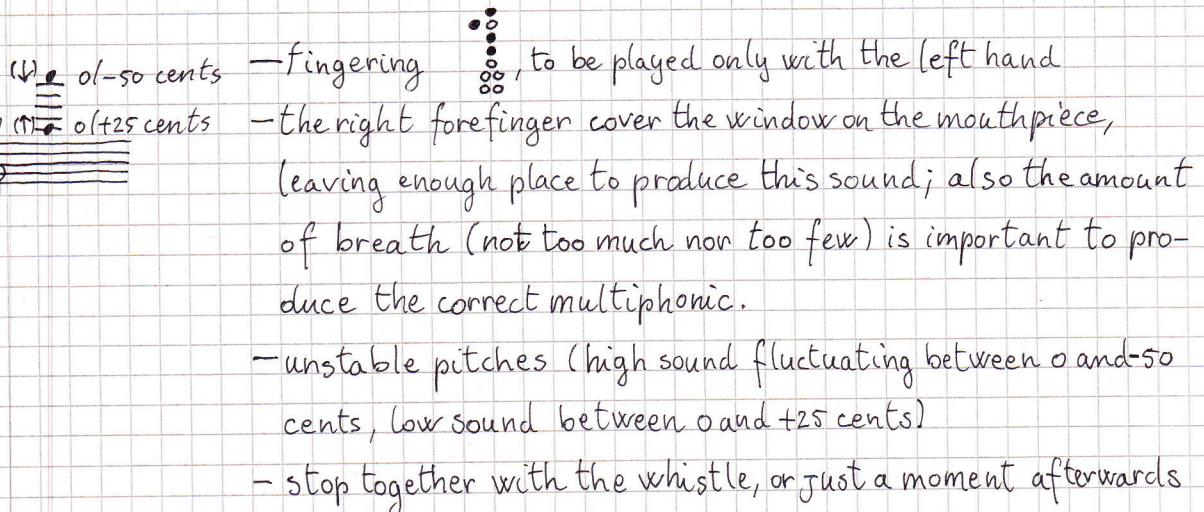 (↓) 0/-50 cents – fingering , to be played only with the left hand
(↑) 0/+25 cents – the right forefinger cover the window on the mouthpiece,
leaving enough place to produce this sound; also the amount
of breath (not too much nor too few) is important to pro-
duce the correct multiphonic.
– unstable pitches (high sound fluctuating between 0 and -50
cents, low sound between 0 and +25 cents)
– stop together with the whistle, or just a moment afterwards